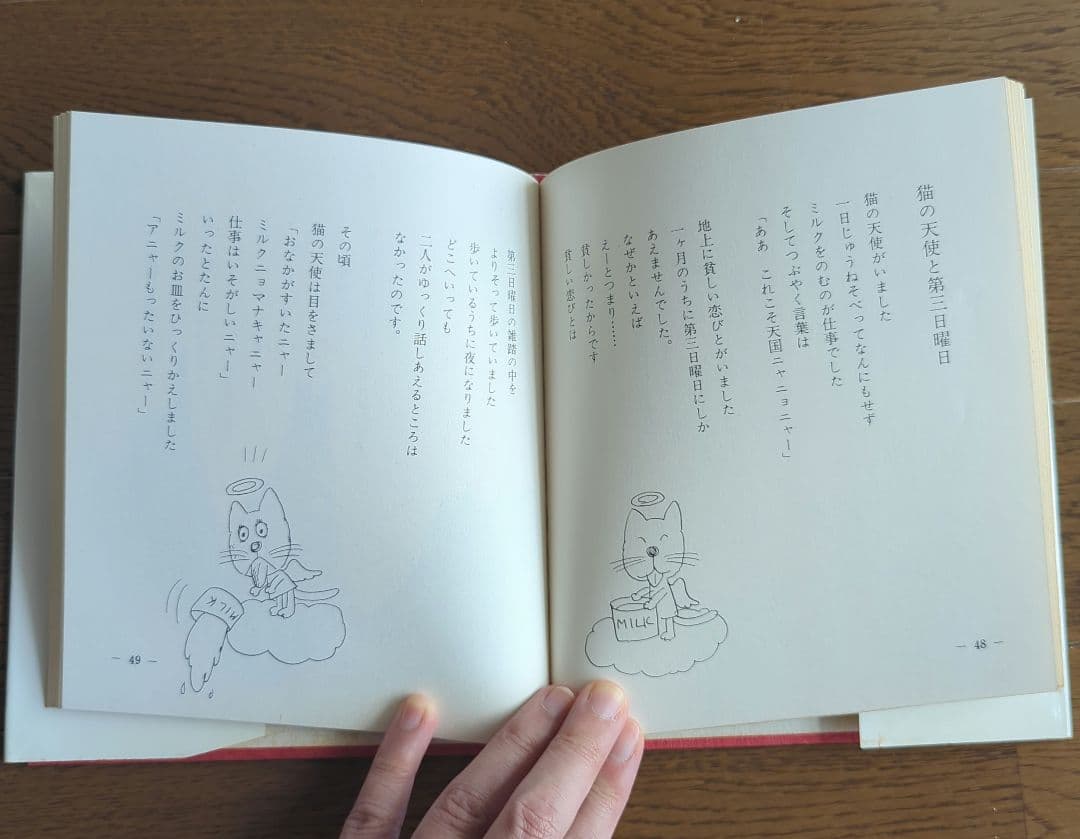 猫の天使と第三日曜日
猫の天使がいました
一日じゅうねそべってなんにもせず
ミルクをのむのが仕事でした
そしてつぶやく言葉は
「ああ　これこそ天国ニャニョニャー」
地上に貧しい恋びとがいました
一ヶ月のうちに第三日曜日にしか
あえませんでした。
なぜかといえば
えーとつまり……
貧しかったからです
貧しい恋びとは
MILK
— 48 —
第三日曜日の雑踏の中を
よりそって歩いていました
歩いているうちに夜になりました
どこへいっても
二人がゆっくり話しあえるところは
なかったのです。
その頃
猫の天使は目をさまして
「おなかがすいたニャー
ミルクニョマナキャニャー
仕事はいそがしいニャー」
いったとたんに
ミルクのお皿をひっくりかえしました
「アニャーもったいないニャー」
MILK
— 49 —